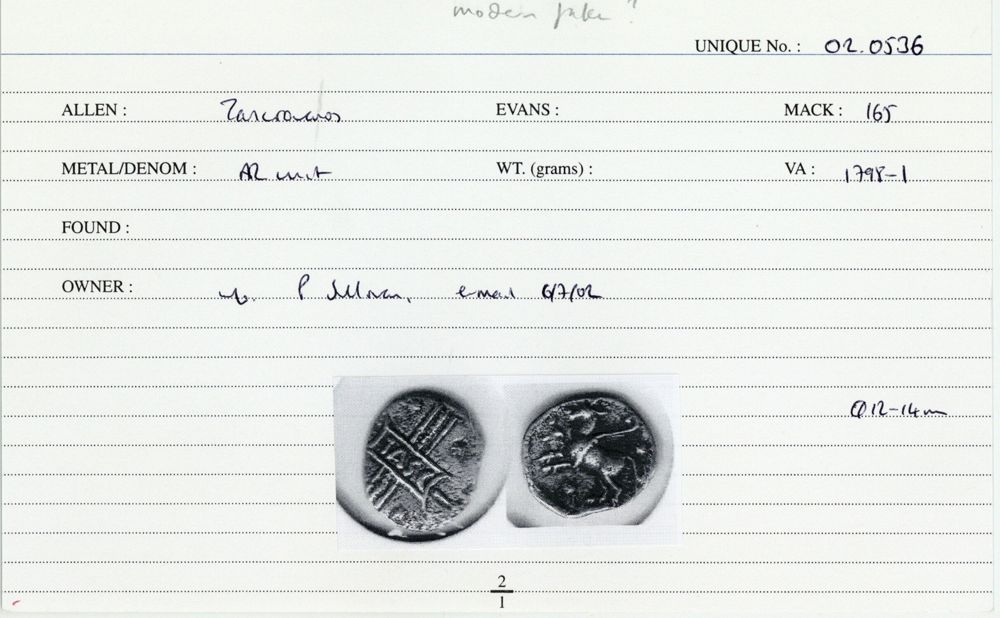 modern fake?
UNIQUE No. : 02.0536
ALLEN : Tasciovanos EVANS : MACK : 165
METAL/DENOM : AR unit WT. (grams) : VA : 1798-1
FOUND :
OWNER : P email 6/7/02
TASC
Ø12-14m
2
1